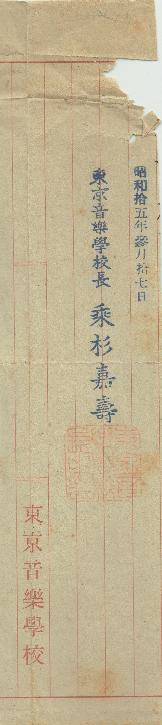 昭和拾五年參月拾七日
東京音樂學校長 乘杉嘉壽
東京音樂學校